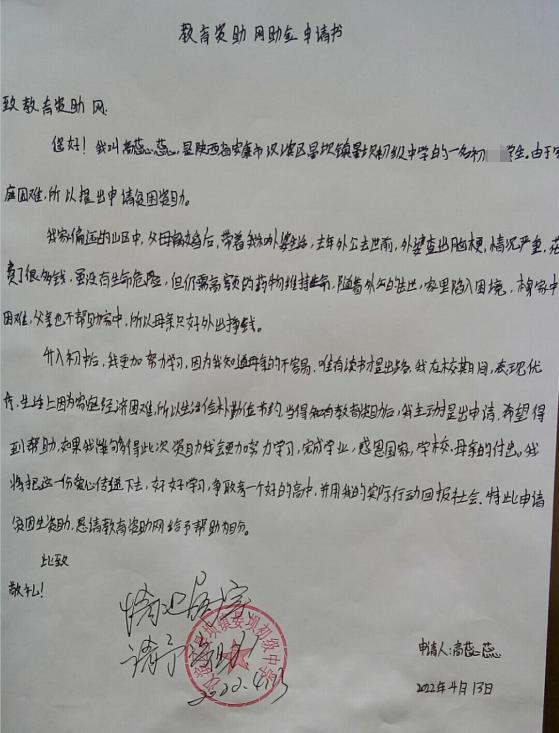 教育资助网助金申请书
致教育资助网:
您好！我叫高蕊蕊,是陕西省安康市汉滨区晏坝镇晏坝初级中学的一名初 学生.由于家
庭困难,所以提出申请贫困资助。
我家偏远的山区中,父母离婚后,带着我和外婆生活,去年外公去世前,外婆查出脑梗,情况严重,花
费了很多钱,虽没有生命危险,但仍需高额的药物维持生命,随着外公的去世,家里陷入困境,
困难,父亲也不帮助家中,所以母亲只好外出挣钱。
升入初中后,我更加努力学习,因为我知道母亲的不容易.唯有读书才是出路.我在校期间,表现优
秀,生活上因为家庭经济困难,所以生活俭朴勤俭节约.当得知有教育资助后,我主动提出申请.希望得
到帮助,如果我能够得此次资助我会更加努力学习,完成学业,感恩国家,学校.母亲的付出.我
将把这一份爱心传递下去,好好学习,争取考一个好的高中,并用我的实际行动回报社会.特此申请
贫困生资助,恳请教育资助网给予帮助为盼。
此致
敬礼!
情况属实
请予资助
2022.4.13
申请人:高蕊蕊
2022年4月13日